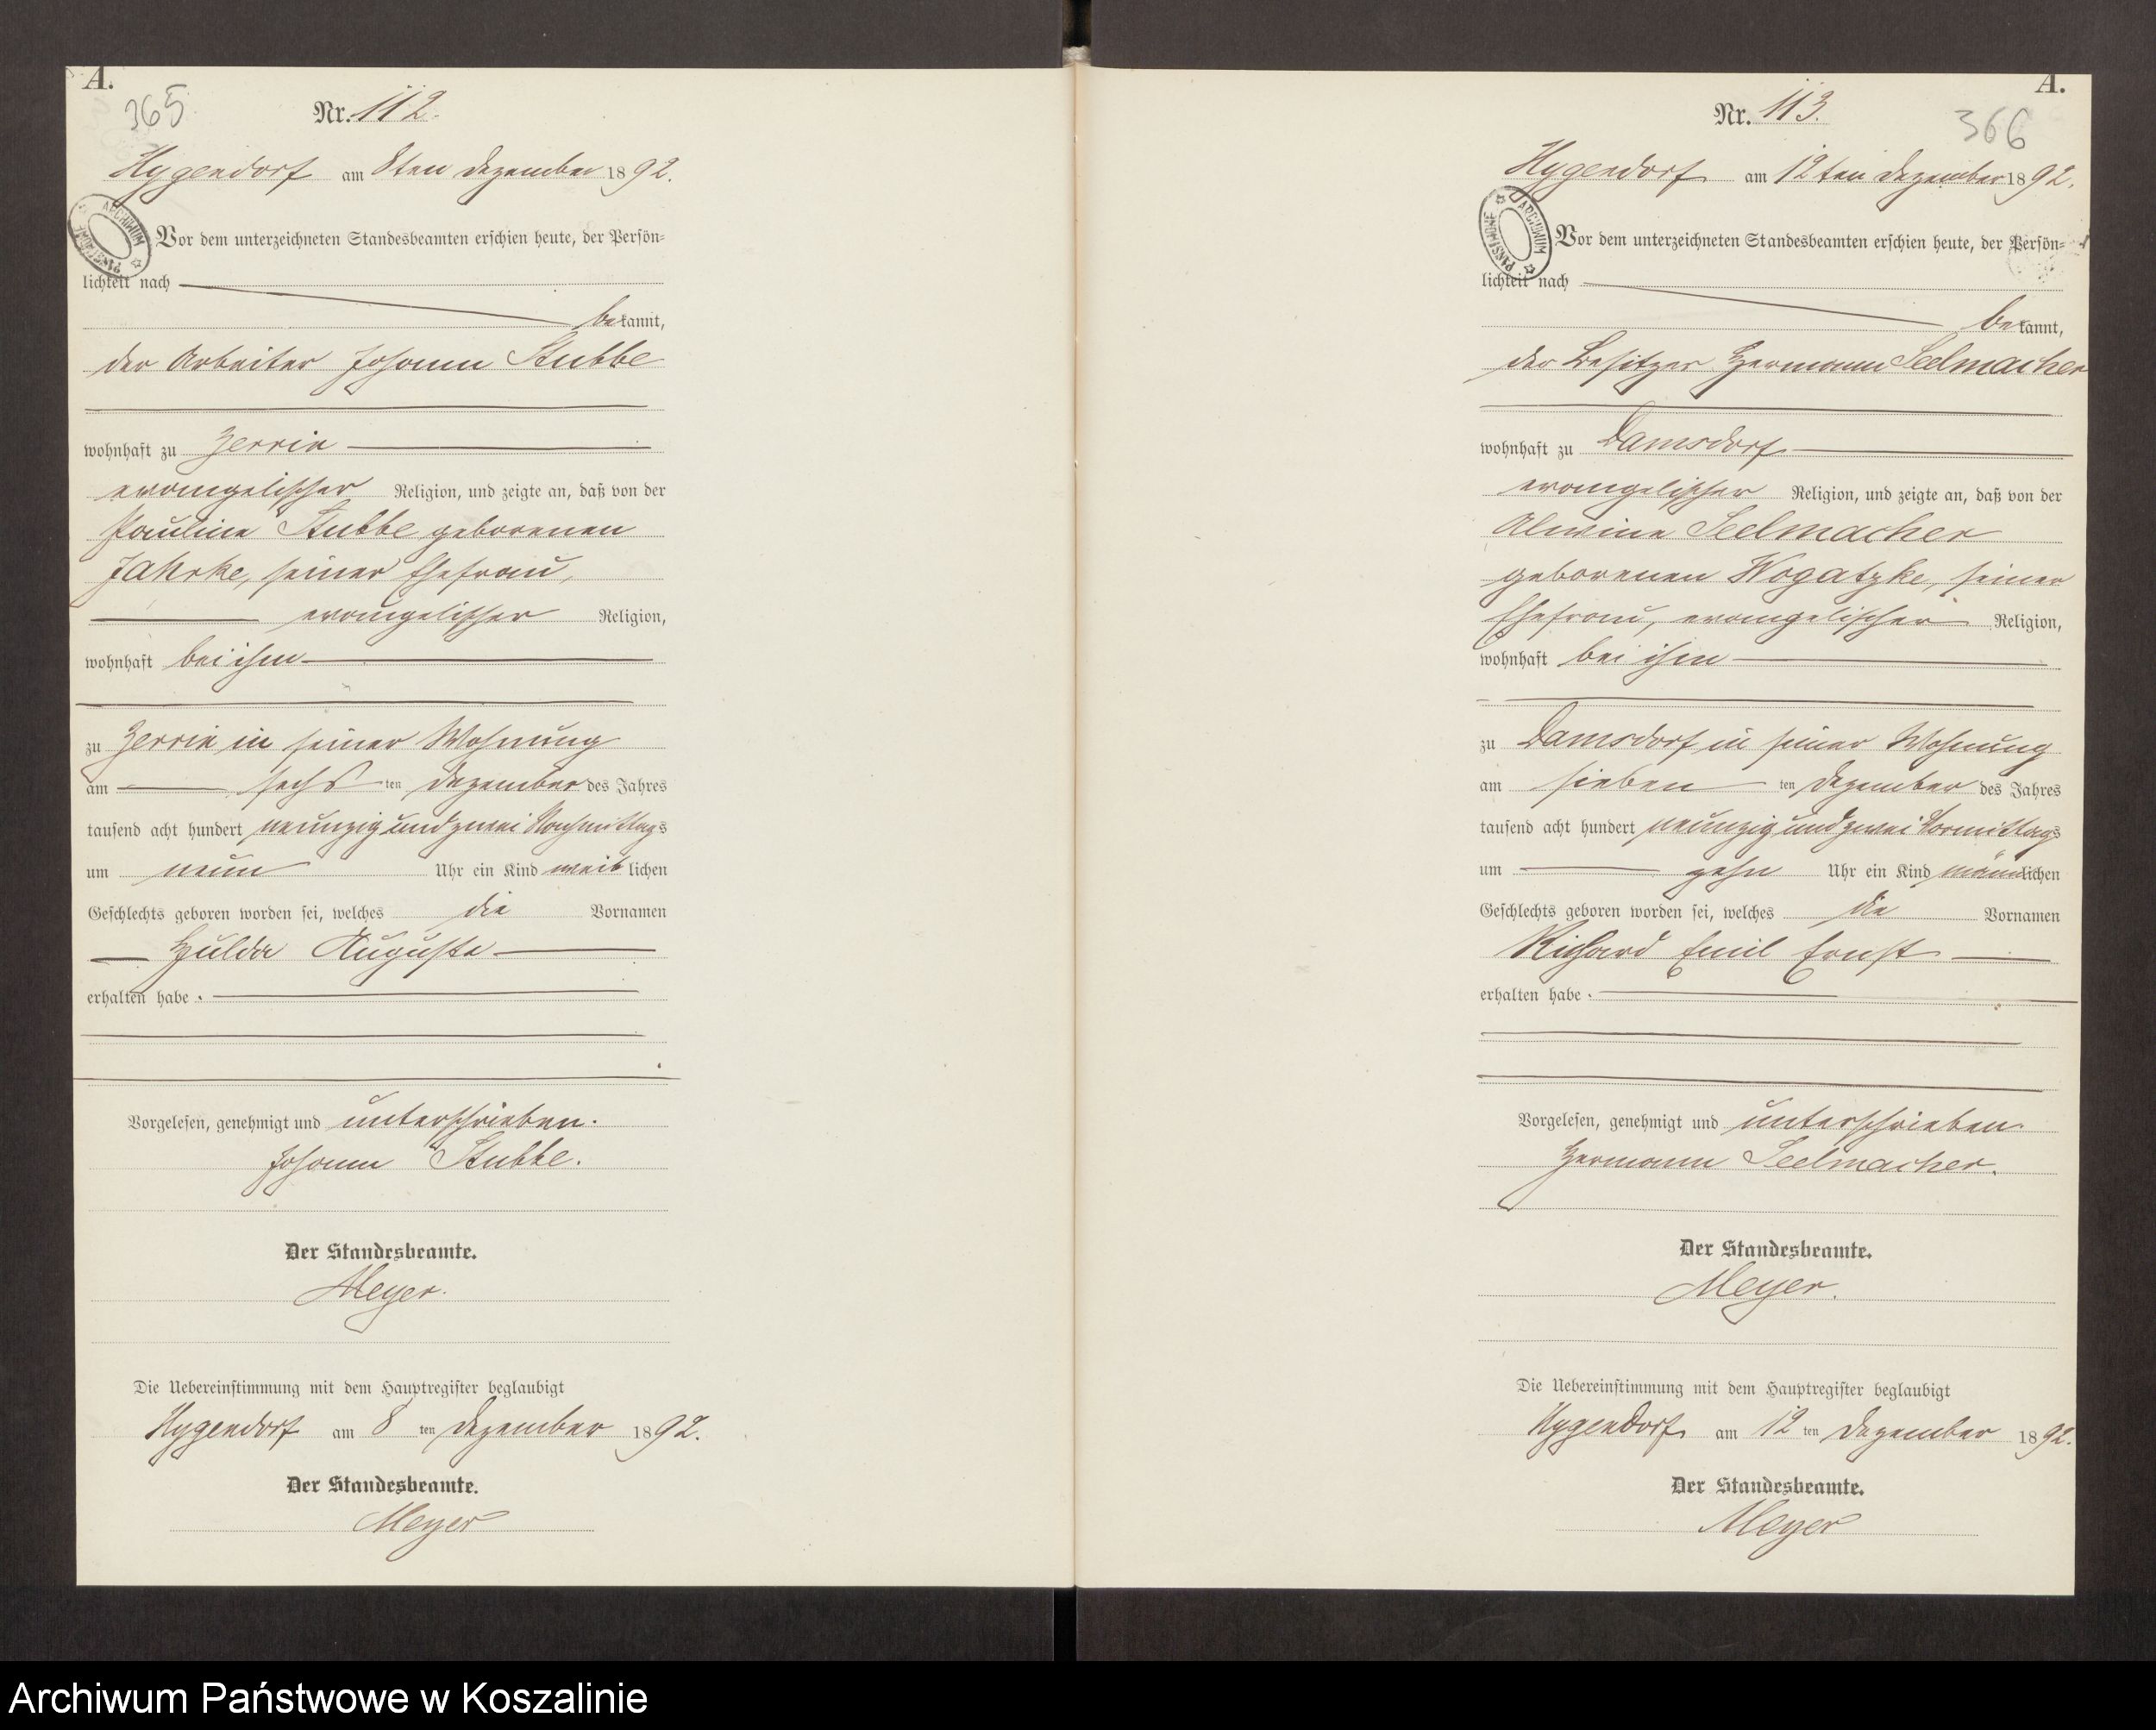 A.
365
Nr. 112.
Hygendorf am 8ten Dezember 1892.
Vor dem unterzeichneten Standesbeamten erschien heute, der Persön-
lichkeit nach
bekannt,
der Arbeiter Johann Stubbe
wohnhaft zu Zerrin
evangelischer Religion, und zeigte an, daß von der
Pauline Stubbe geborenen
Jahrke, seiner Ehefrau,
evangelischer Religion,
wohnhaft bei ihm
zu Zerrin in seiner Wohnung
am sechsten Dezember des Jahres
tausend acht hundert neunzig und zwei Nachmittags
um neun Uhr ein Kind weiblichen
Geschlechts geboren worden sei, welches die Vornamen
Hulda Auguste
erhalten habe.
Vorgelesen, genehmigt und unterschrieben.
Johann Stubbe.
Der Standesbeamte.
Meyer.
Die Uebereinstimmung mit dem Hauptregister beglaubigt
Hygendorf am 8ten Dezember 1892.
Der Standesbeamte.
Meyer
ARCHIWUM PAŃSTWOWE
A.
366
Nr. 113.
Hygendorf am 12ten Dezember 1892.
Vor dem unterzeichneten Standesbeamten erschien heute, der Persön-
lichkeit nach
bekannt,
der Besitzer Hermann Seelmacher
wohnhaft zu Damsdorf
evangelischer Religion, und zeigte an, daß von der
Alwine Seelmacher
geborenen Wogatzke, seiner
Ehefrau, evangelischer Religion,
wohnhaft bei ihm
zu Damsdorf in seiner Wohnung
am siebenten Dezember des Jahres
tausend acht hundert neunzig und zwei Vormittags
um zehn Uhr ein Kind männlichen
Geschlechts geboren worden sei, welches die Vornamen
Richard Emil Ernst
erhalten habe.
Vorgelesen, genehmigt und unterschrieben.
Hermann Seelmacher.
Der Standesbeamte.
Meyer.
Die Uebereinstimmung mit dem Hauptregister beglaubigt
Hygendorf am 12ten Dezember 1892.
Der Standesbeamte.
Meyer
ARCHIWUM PAŃSTWOWE
Archiwum Państwowe w Koszalinie